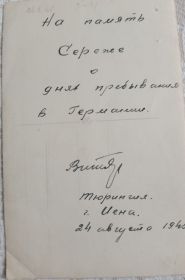 На память
Сереже
о
днях пребывания
в Германии.
Тюрингия.
г. Иена.
24 августа